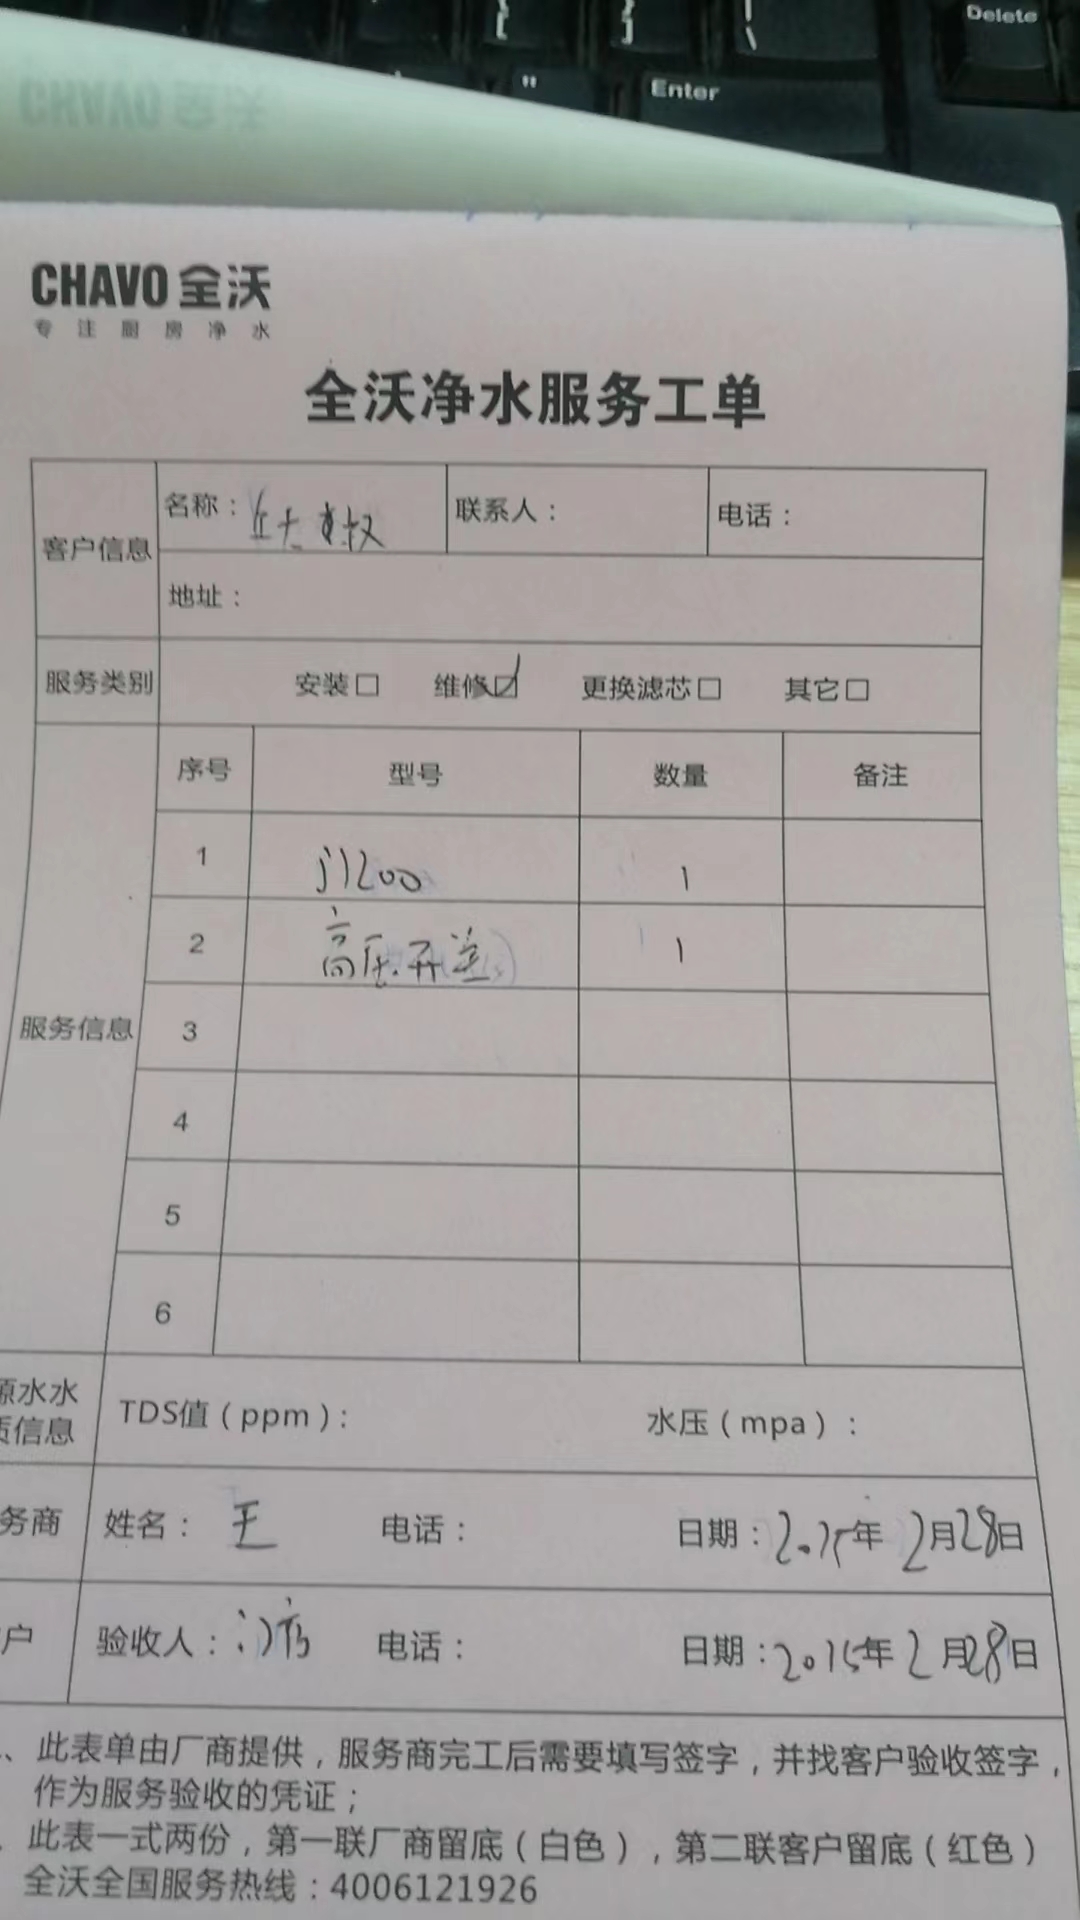 [
]
\
Delete
"
Enter
CHAVO 全沃
CHAVO 全沃
专注厨房净水
全沃净水服务工单
客户信息
名称：
联系人：
电话：
地址：
服务类别
安装□ 维修☑ 更换滤芯□ 其它□
服务信息
序号 型号 数量 备注
1 1
2 高压开关 1
3
4
5
6
源水水
质信息
TDS值（ppm）： 水压（mpa）：
务商 姓名：王 电话： 日期：2015年2月28日
户 验收人： 电话： 日期：2015年2月28日
、此表单由厂商提供，服务商完工后需要填写签字，并找客户验收签字，
作为服务验收的凭证；
、此表一式两份，第一联厂商留底（白色），第二联客户留底（红色）
全沃全国服务热线：4006121926